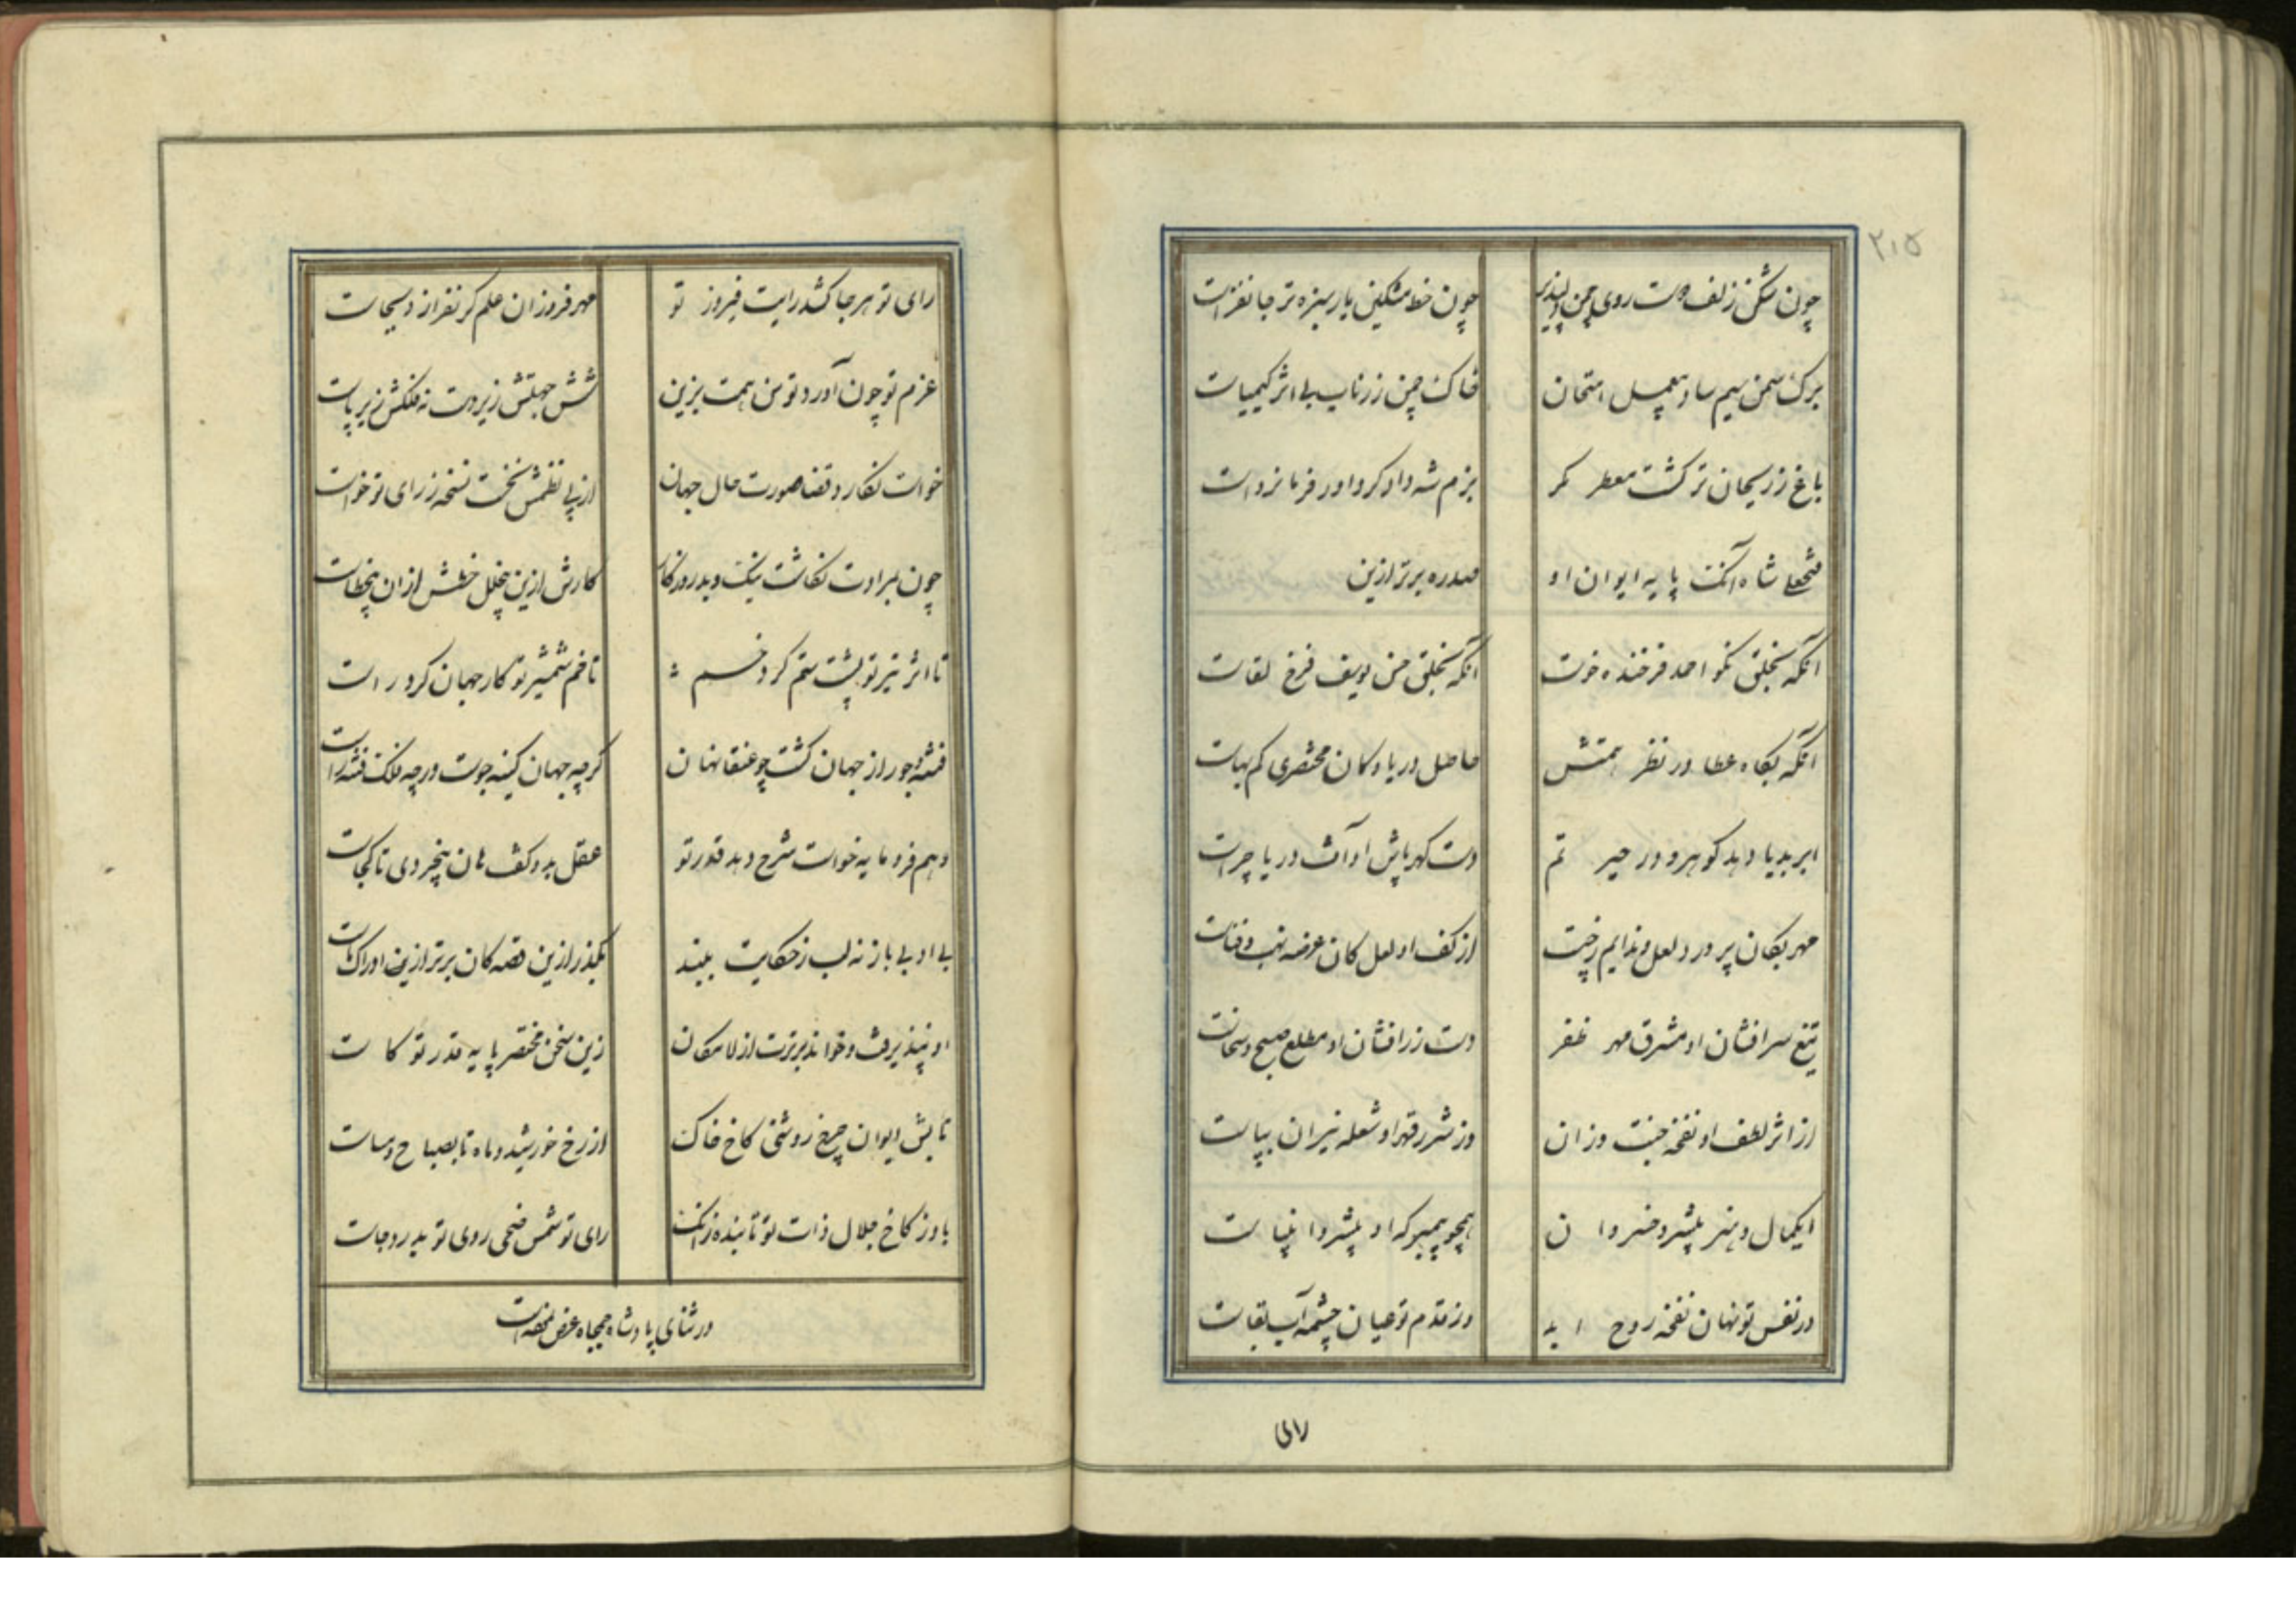 ۲۱۵
چون شکن زلف دوست روی چمن دلپذیر چون خط مشکین یار سبزه تر جانفزاست
برک سمن سیم ساد بیعمل امتحان خاک چمن زر ناب بی اثر کیمیاست
باغ ز ریحان تر کشت معطر مکر بزم شه دادکر داور فرمانرواست
فتحعلی شاه آنک پایه ایوان او سدره برتر ازین
آنکه بخلق نکو احمد فرخنده خوست آنکه بخلق حسن یوسف فرخ لقاست
آنکه بکاه عطا در نظر همتش حاصل دریا و کان مختصری کم بهاست
ابر بدریا دهد کوهر و در حیرتم دست کهرپاش او آفت دریا چراست
مهر بکان پرورد لعل و ندایم ز چیست از کف او لعل کان عرضه نهب و فناست
تیغ سرافشان او مشرق مهر ظفر دست زرافشان او مطلع صبح سخاست
از اثر لطف او نفخه جنت وزان وز شرر قهر او شعله نیران بپاست
ای بکمال و هنر پیشرو خسروان همچو پیمبر که او پیشرو انبیاست
در نفس تو نهان نفخه روح ا به وز قدم تو عیان چشمه آب بقاست
رای تو هر جا کشد رایت فیروز تو مهر فروزان علم کر نفرازد سجاست
عزم تو چون آورد توسن همت بزین شش جهتش زیر دست نه فلکش زیر پاست
خواست نکارد قضا صورت حال جهان از پی نظمش نخست نسخه ز رای تو خواست
چون بمرادت نکاشت نیک و بد روزکار کارش ازین بیخلل خطش از آن بیخطاست
تا اثر تیر تو پشت ستم کرد خم تا خم شمشیر تو کار جهان کرد راست
فتنه و جور از جهان کشت چو عنقا نهان کرچه جهان کینه جوست ورچه فلک فتنه زاست
وهم فرومایه خواست شرح دهد قدر تو عقل بدو کفت هان بیخردی تا کجاست
بی ادبی باز نه لب ز حکایت ببند بکذر ازین قصه کان برتر ازین ادراک ماست
او نپذیرفت و خواند برترت از لامکان زین سخن مختصر پایه قدر تو کاست
تابش ایوان چرخ روشنی کاخ خاک از رخ خورشید و ماه تا بصباح و مساست
باد ز کاخ جلال ذات تو تابنده زانک رای تو شمس ضحی روی تو بدر دجاست
در ثنای پادشاه جمجاه عرض نموده است